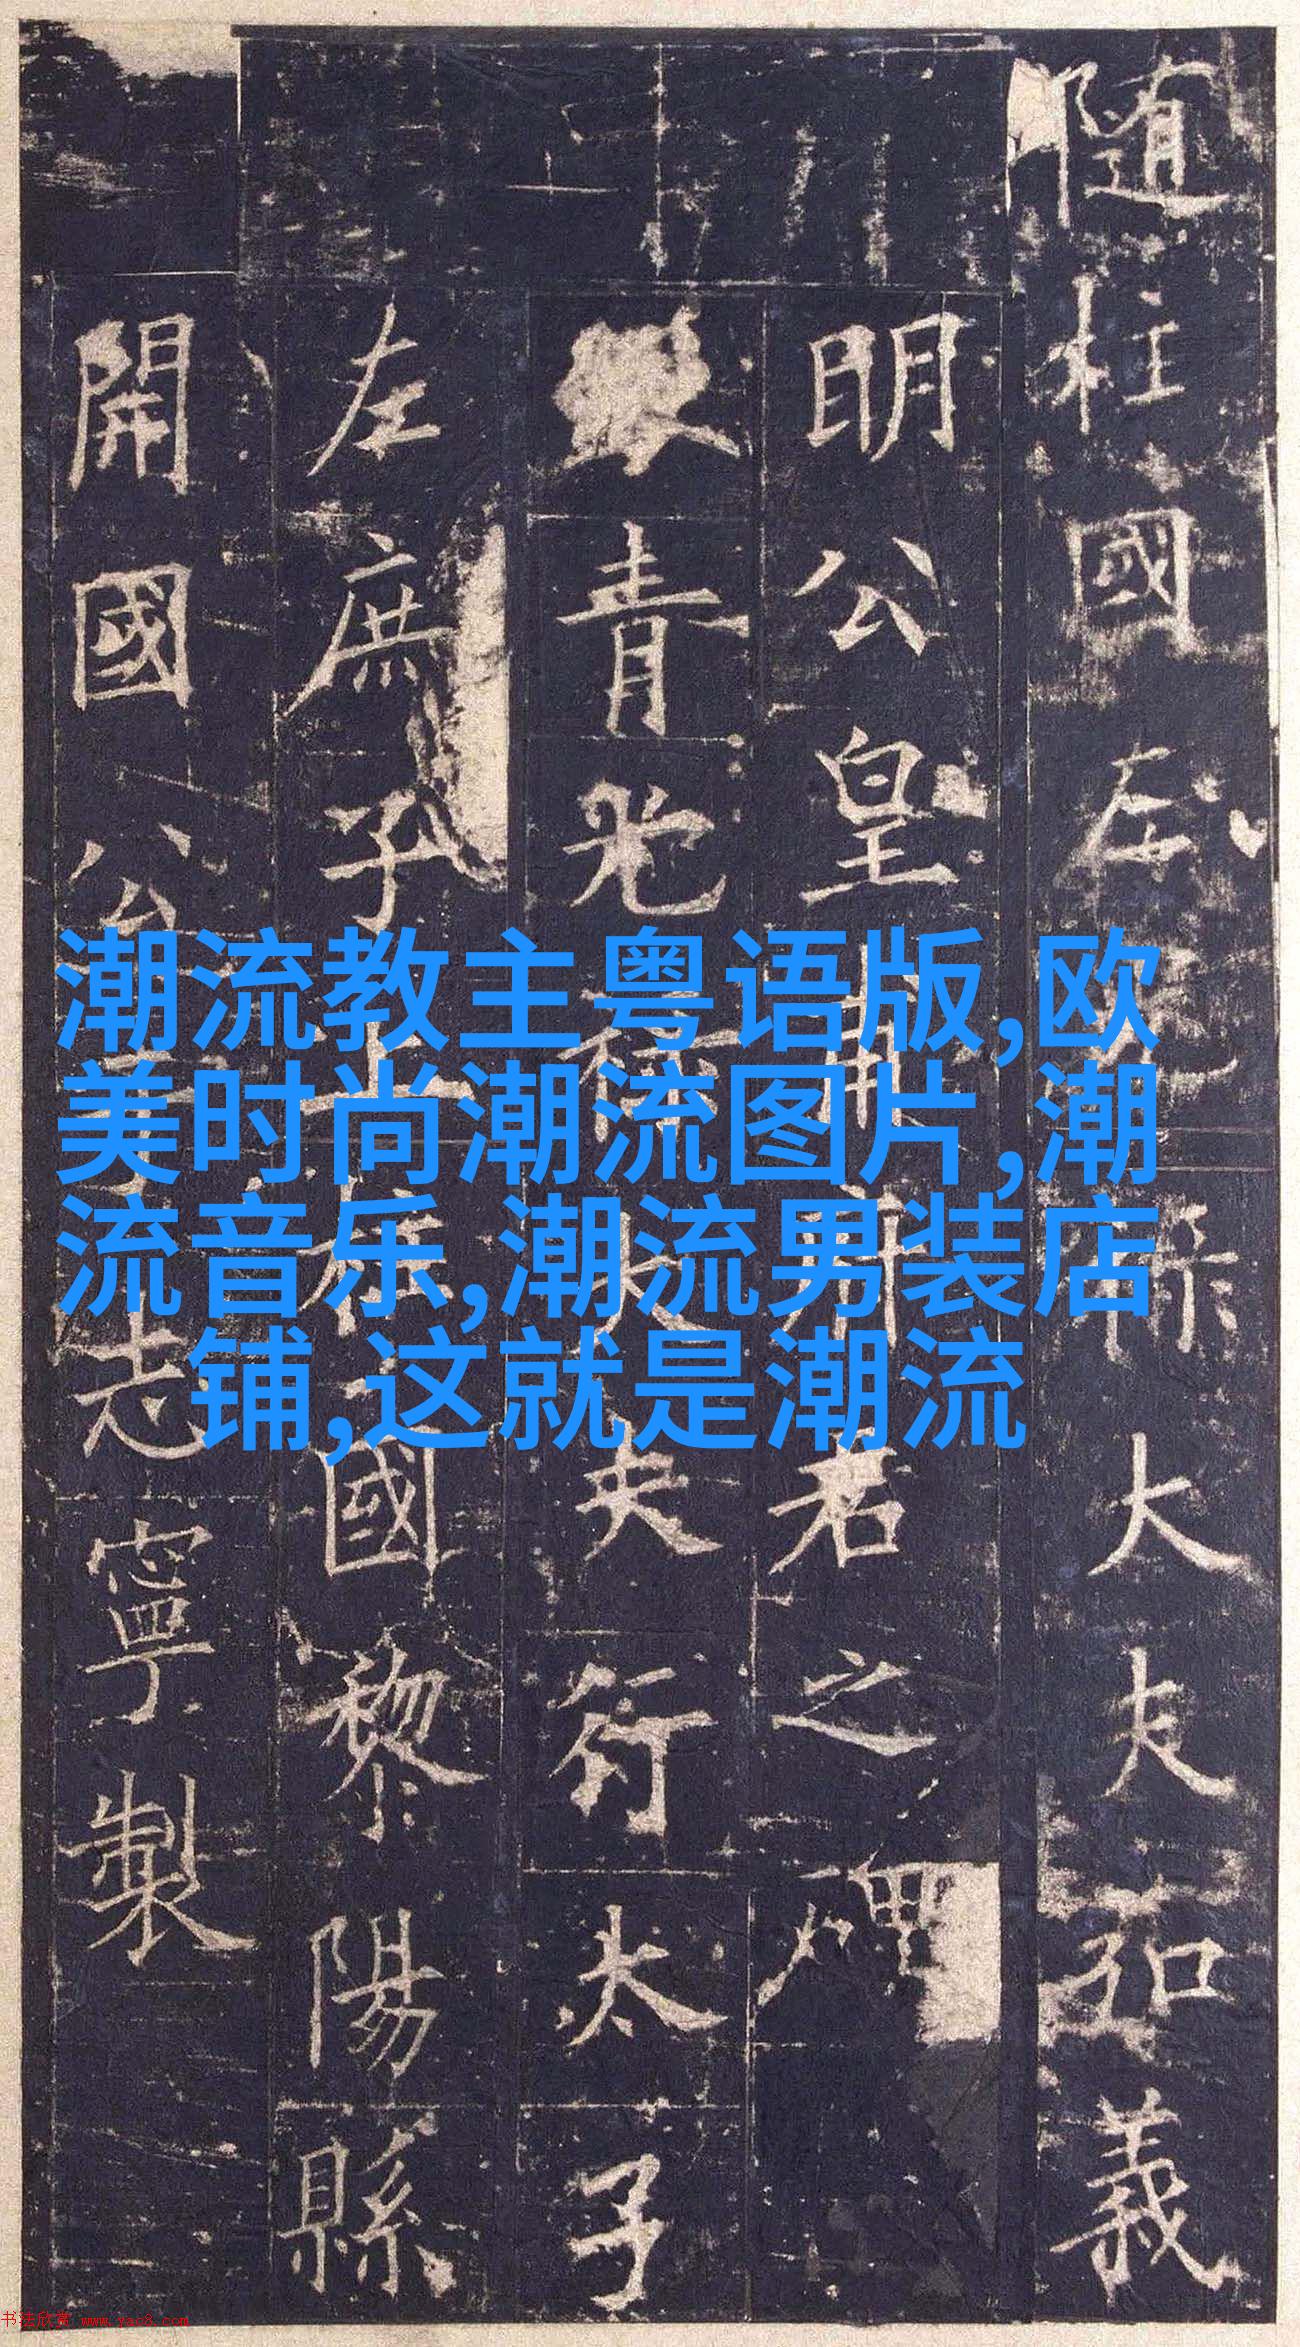 隨柱國左光祿大夫弘義
明公皇甫府君之碑
銀青光祿大夫行太子
左庶子上柱國黎陽縣
開國公于志寧製
潮流教主粤语版,欧
美时尚潮流图片,潮
流音乐,潮流男装店
铺,这就是潮流
书法欣赏 www.yac8.com